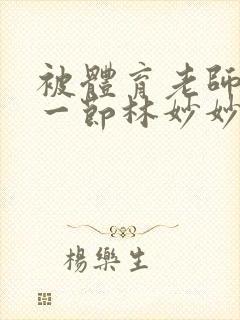 被體育老師
一節林妙妙
楊樂生